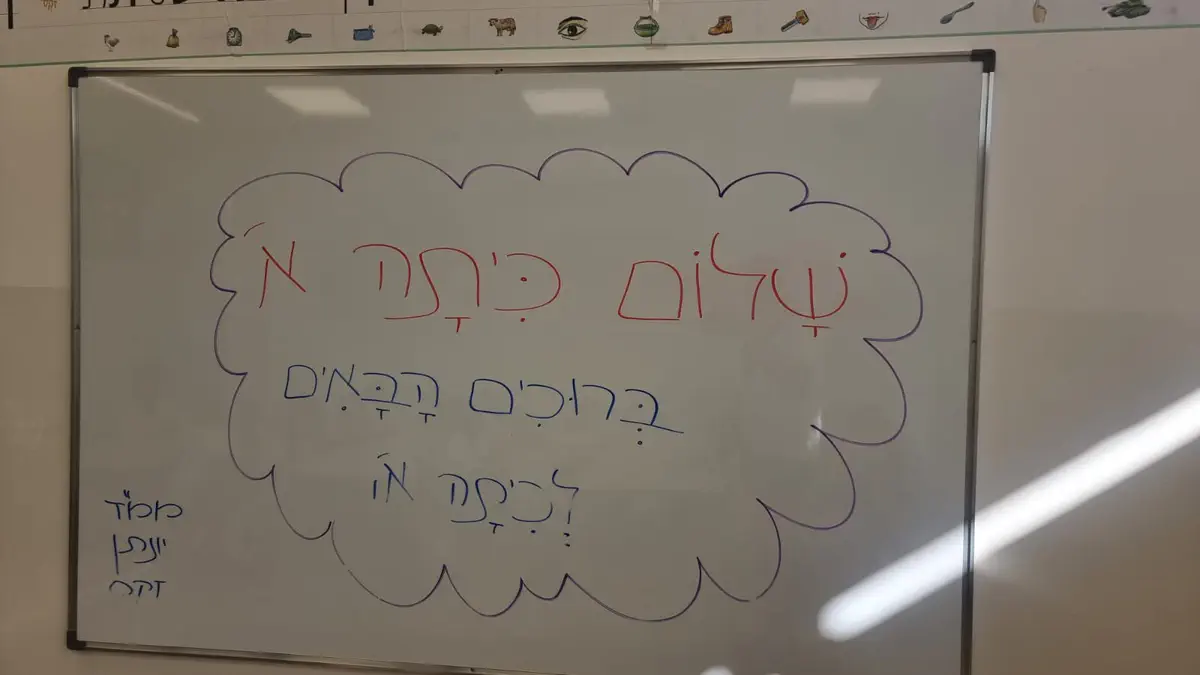 שָׁלוֹם כִּיתָה א'
בְּרוּכִים הַבָּאִים
לְכִיתָה א'
ממ"ד
יונתן